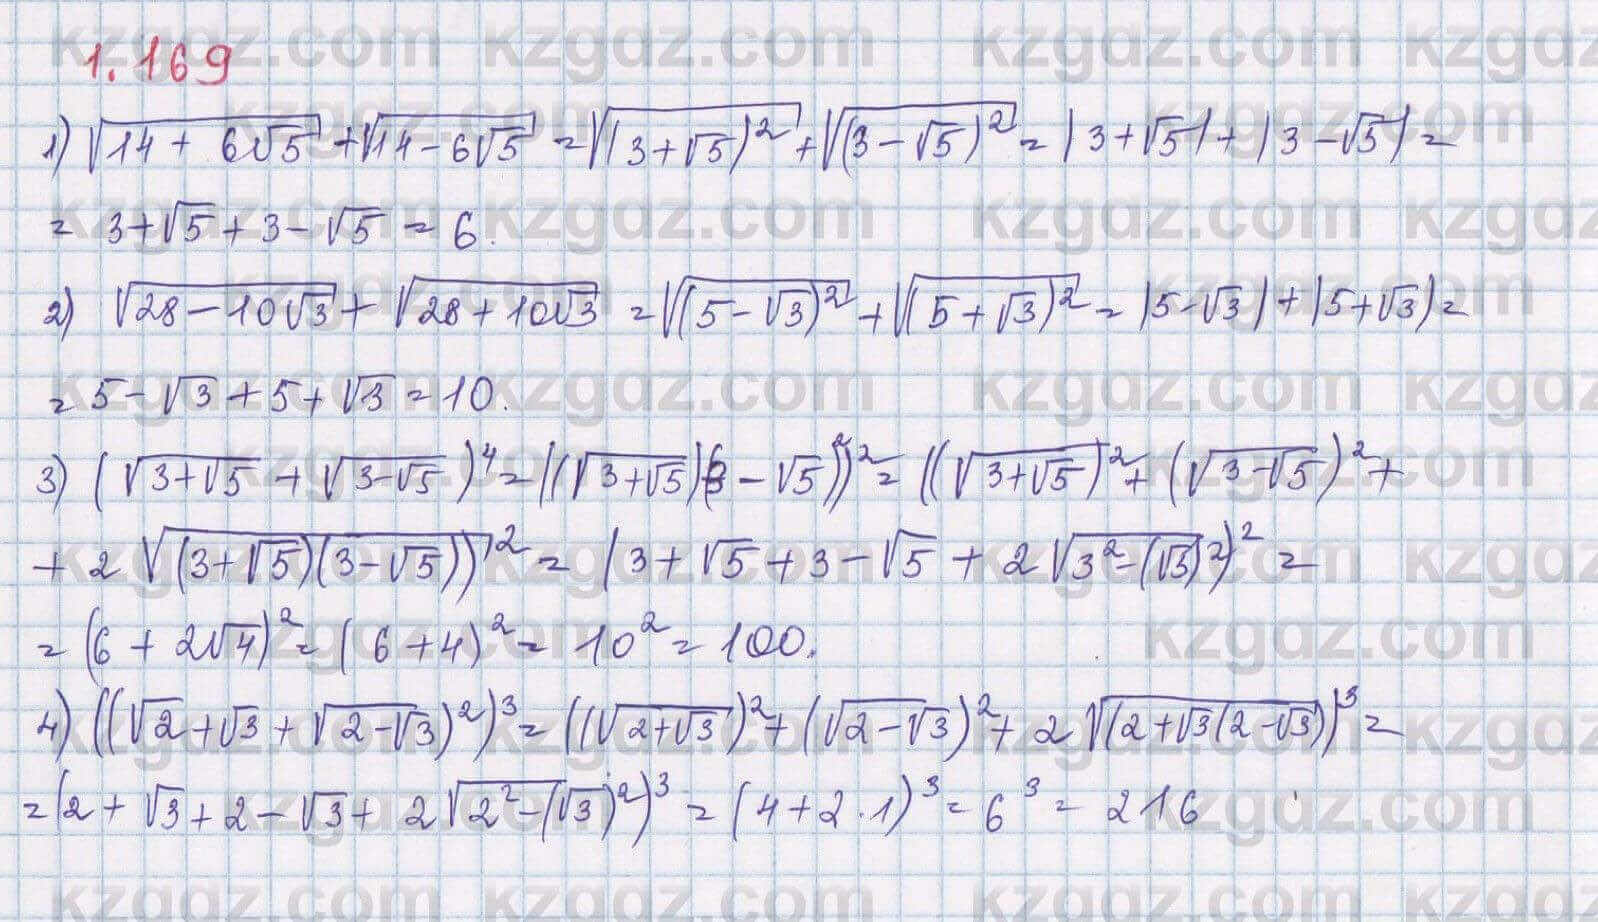 1.169
1) √(14 + 6√5) + √(14 - 6√5) = √((3 + √5)²) + √((3 - √5)²) = |3 + √5| + |3 - √5| =
= 3 + √5 + 3 - √5 = 6.
2) √(28 - 10√3) + √(28 + 10√3) = √((5 - √3)²) + √((5 + √3)²) = |5 - √3| + |5 + √3| =
= 5 - √3 + 5 + √3 = 10.
3) (√(3+√5) + √(3-√5))⁴ = ((√(3+√5) - √5)²)² = ((√(3+√5))² + (√(3-√5))² +
+ 2√((3+√5)(3-√5)))² = (3 + √5 + 3 - √5 + 2√(3² - (√3)²))² =
= (6 + 2√4)² = (6 + 4)² = 10² = 100.
4) ((√2 + √3 + √(2-√3))²)³ = ((√(2+√3))² + (√(2-√3))² + 2√((2+√3(2-√3)))³ =
= (2 + √3 + 2 - √3 + 2√(2² - (√3)²))³ = (4 + 2·1)³ = 6³ = 216
kzgdz.com